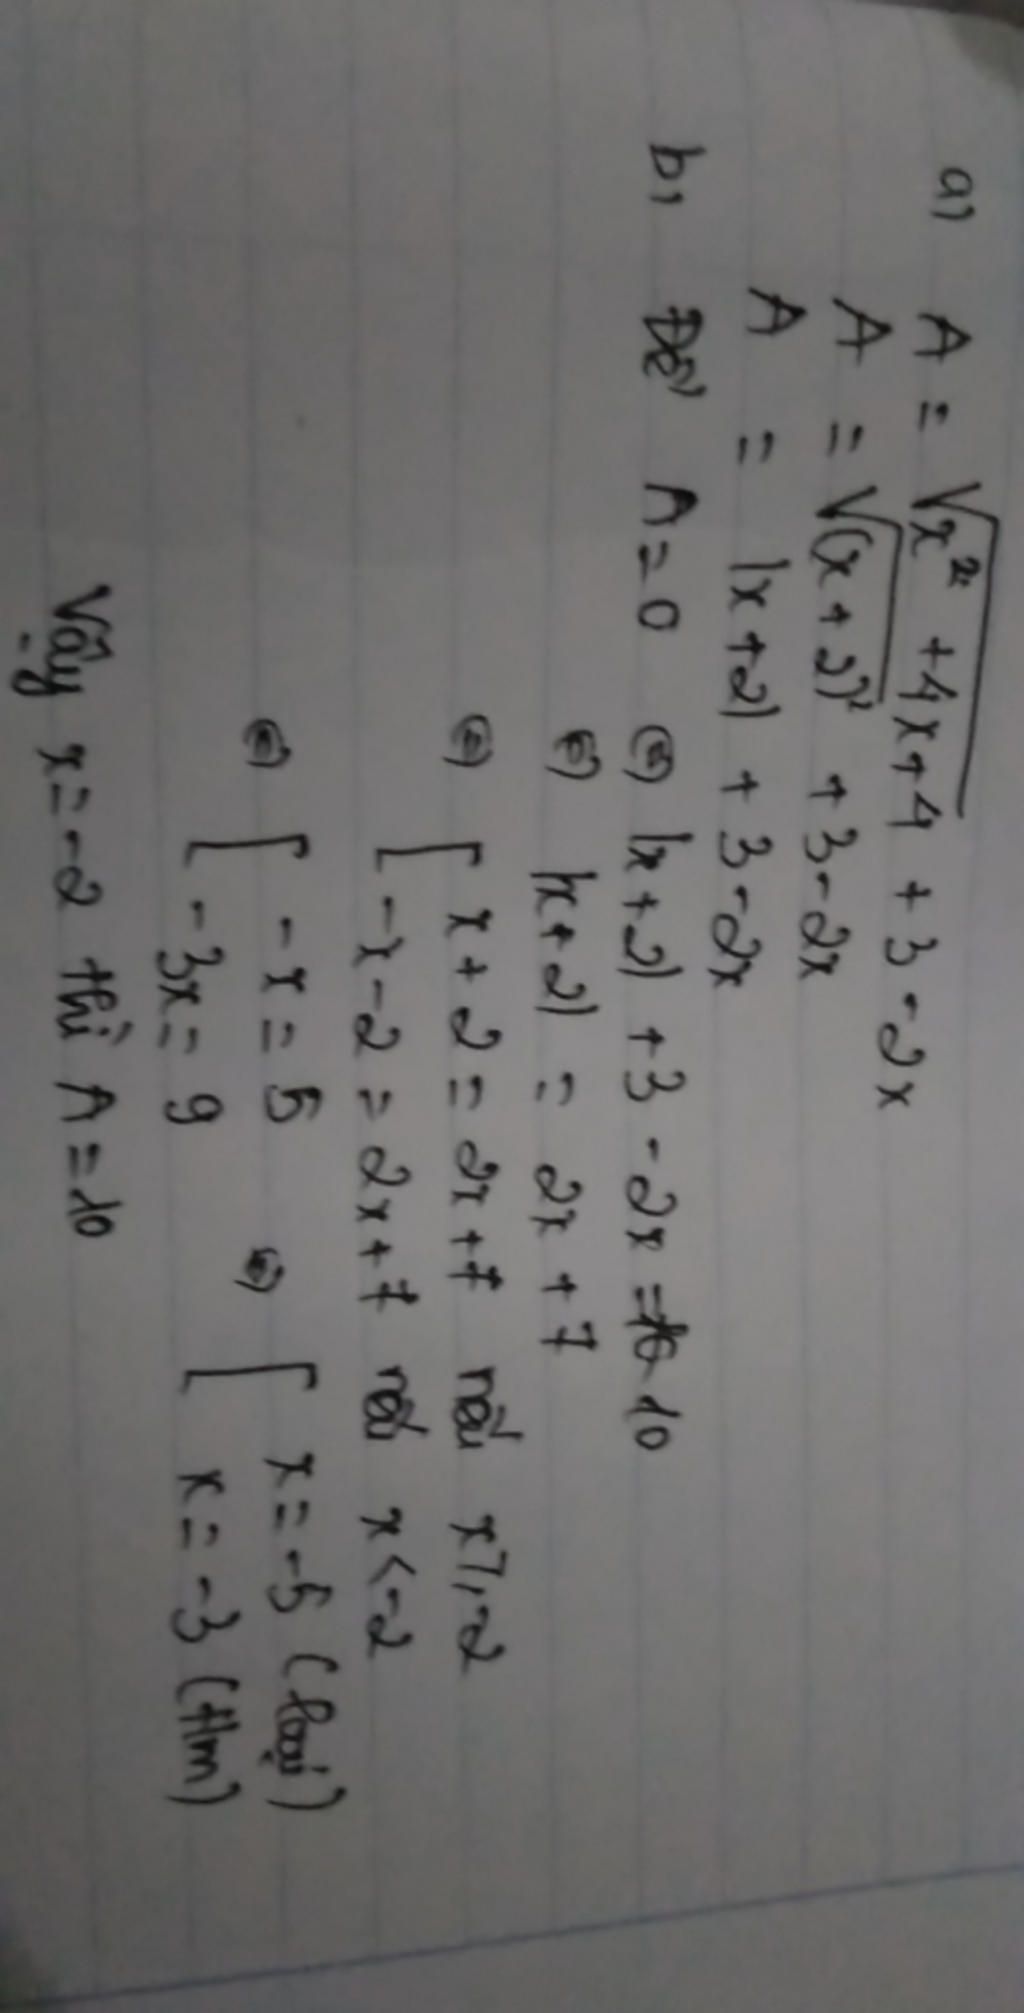 a) A = √(x² + 4x + 4) + 3 - 2x
A = √((x + 2)²) + 3 - 2x
A = |x + 2| + 3 - 2x
b, Để A = 0 ⇔ |x + 2| + 3 - 2x = 10
⇔ |x + 2| = 2x + 7
⇔ [ x + 2 = 2x + 7 nếu x ⩾ -2
-x - 2 = 2x + 7 nếu x < -2
⇔ [ -x = 5 ⇔ [ x = -5 (loại)
-3x = 9 x = -3 (tlm)
Vậy x = -2 thì A = 10